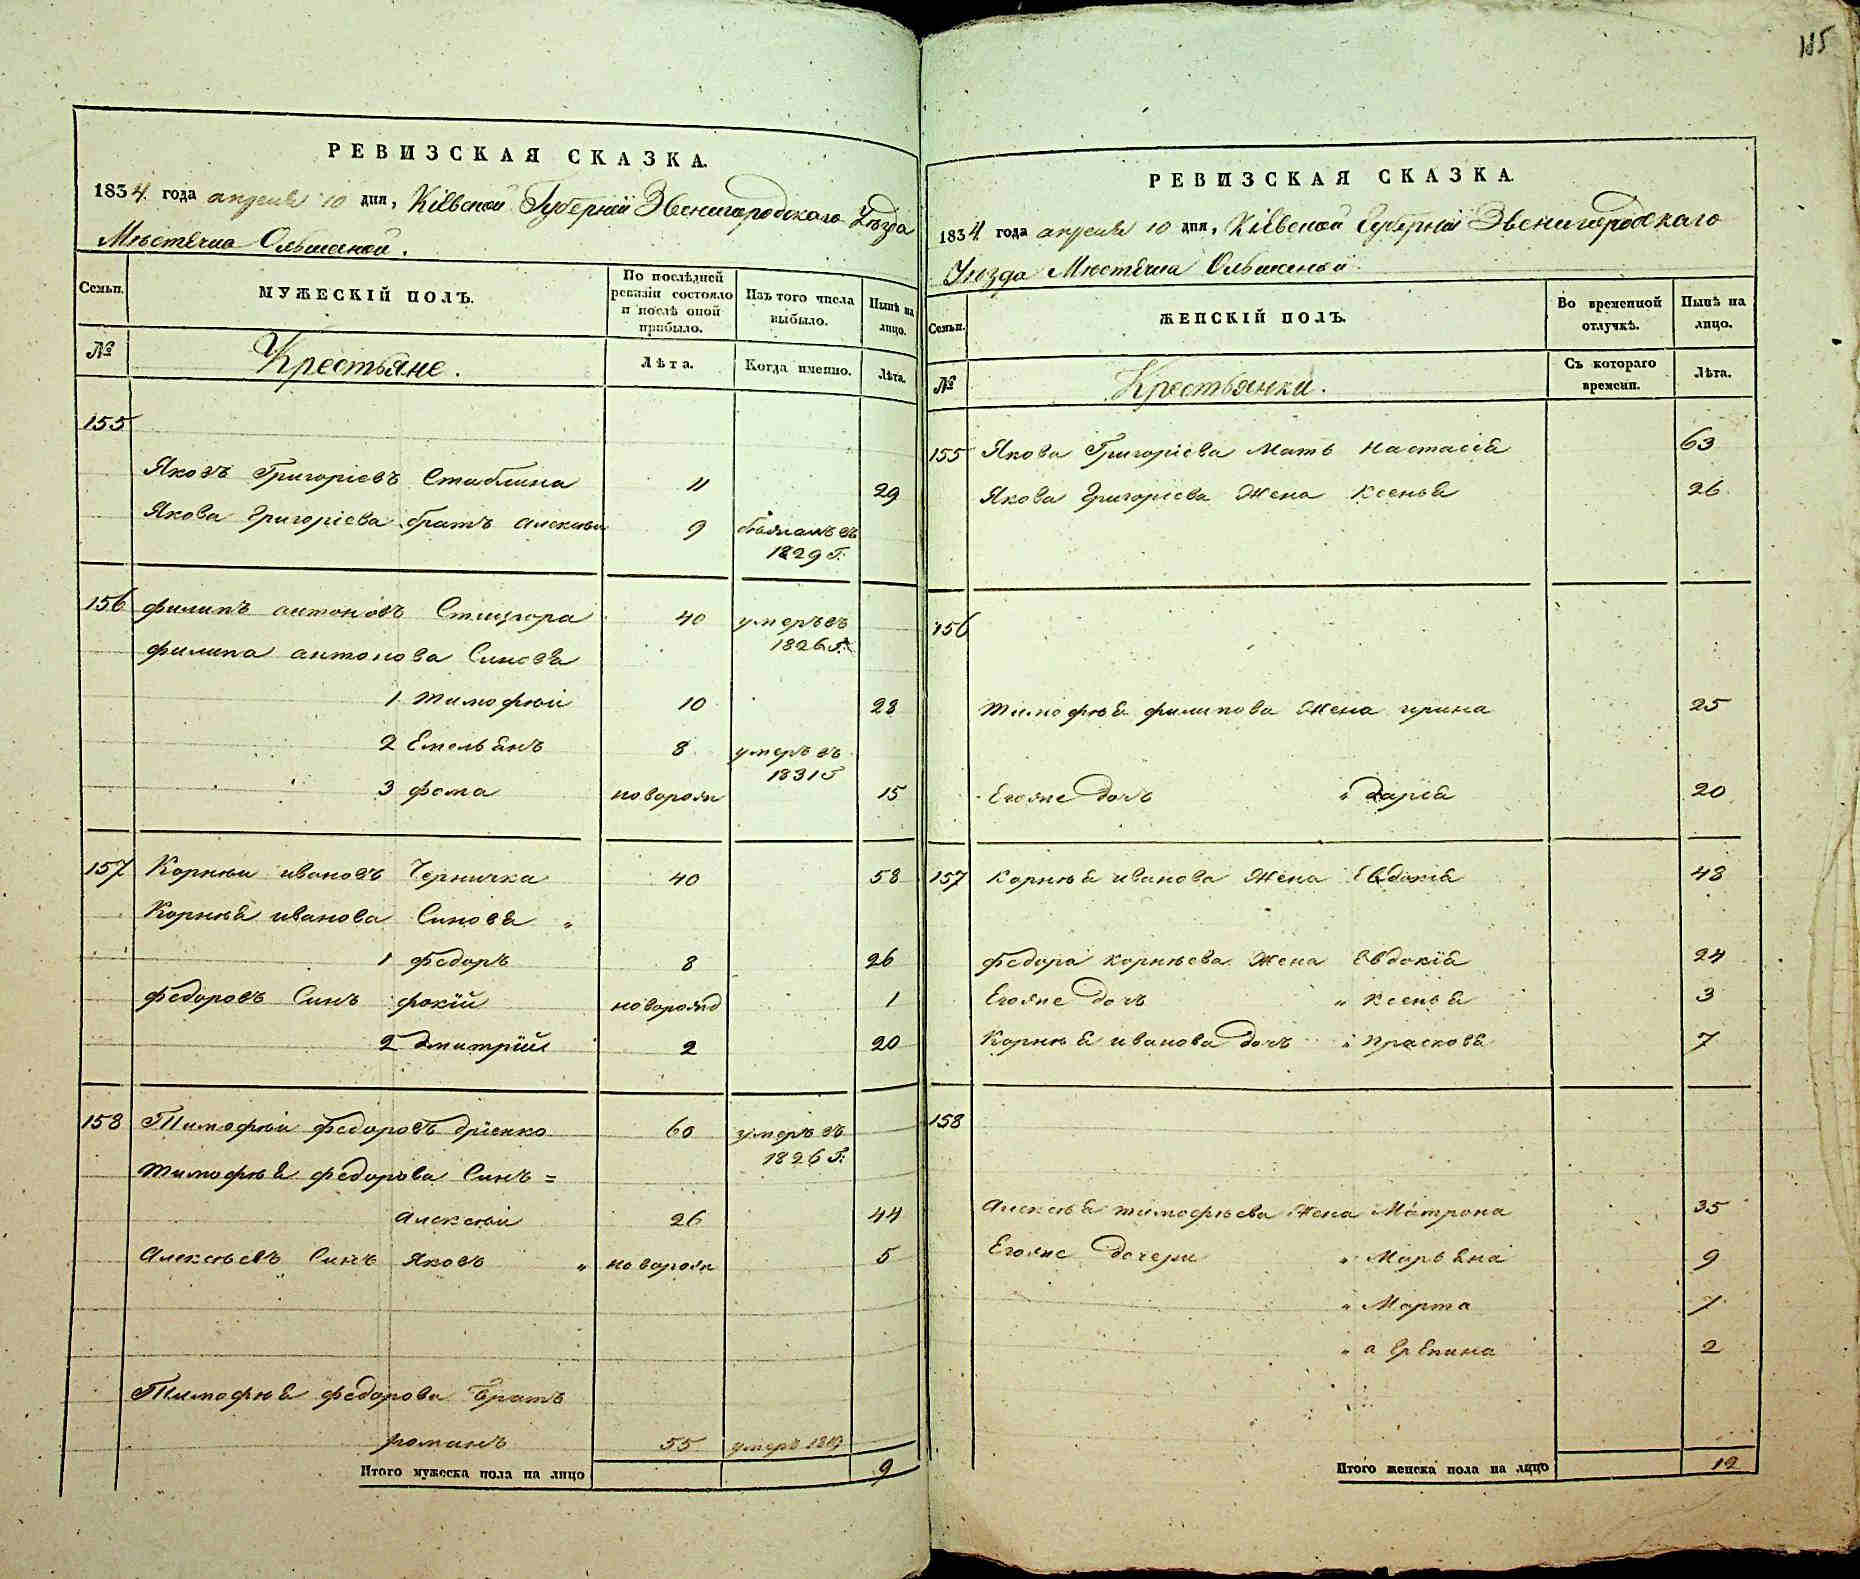 115
РЕВИЗСКАЯ СКАЗКА.
1834 года апреля 10 дня, Кіевской Губерніи Звенигородскаго Уѣзда
Мѣстечка Ольшаной.
Семьи.
МУЖЕСКІЙ ПОЛЪ.
По послѣдней ревизіи состояло и послѣ оной прибыло.
Изъ того числа выбыло.
Нынѣ на лицо.
№
Крестьяне.
Лѣта.
Когда именно.
Лѣта.
155
Яковъ Григоріевъ 11 29
Якова Григоріева братъ Алексѣй 9 1829 г.
156 Филипъ Антоновъ 40 умеръ въ 1826 г.
Филипа Антонова Синовя
1 Тимофѣй 10 28
2 Емельянъ 8 умеръ въ 1831 г
3 Фома новорожд 15
157 Корнѣй Ивановъ Черничка 40 58
Корнѣя Иванова Синовя "
1 Федоръ 8 26
Федоровъ Синъ Фокій новорожд 1
2 Дмитрій 2 20
158 Тимофѣй Федоровъ 60 умеръ въ 1826 г.
Тимофѣя Федорова Синъ =
Алексѣй 26 44
Алексѣевъ Синъ Яковъ " новорожд 5
Тимофѣя Федорова братъ
Романъ 55 умеръ 1819
Итого мужеска пола на лицо 9
РЕВИЗСКАЯ СКАЗКА.
1834 года апреля 10 дня, Кіевской Губерніи Звенигородскаго
Уѣзда Мѣстечка Ольшаной
Семьи.
ЖЕНСКІЙ ПОЛЪ.
Во временной отлучкѣ.
Нынѣ на лицо.
№
Крестьянки.
Съ котораго времени.
Лѣта.
155 Якова Григоріева Мать Настасія 63
Якова Григоріева Жена Ксенья 26
156
Тимофѣя Филипова Жена Ирина 25
Егояже дочъ " Дарія 20
157 Корнѣя Иванова Жена Евдокія 48
Федора Корнѣева Жена Евдокія 24
Егояже дочъ " Ксенья 3
Корнѣя Иванова дочъ " Прасковя 7
158
Алексѣя Тимофѣева Жена Матрона 35
Егояже Дочери " Марьяна 9
" Марта 7
" Агрепина 2
Итого женска пола на лицо 12